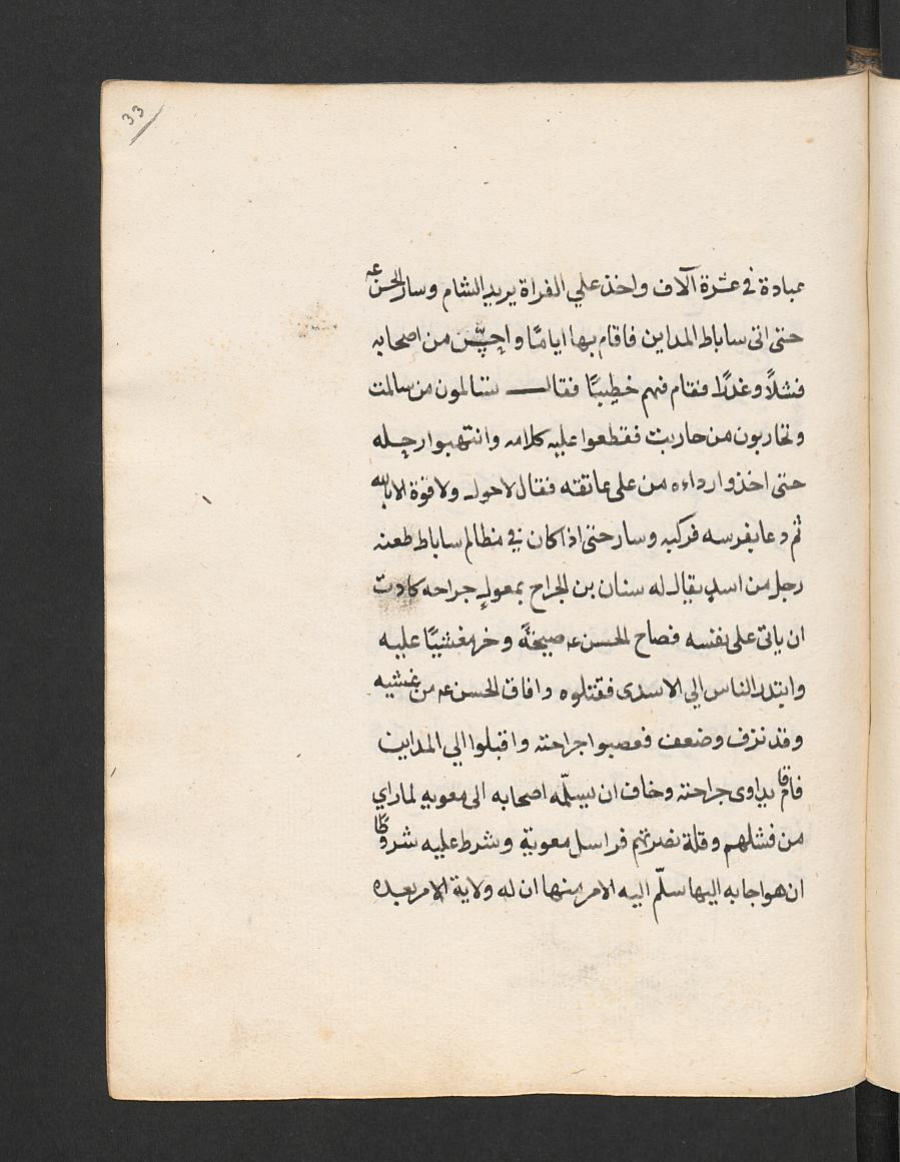 33
عبادة في عشرة آلاف واخذ علي الفراة يريد الشام وسار الحسن عه
حتى اتى ساباط المداين فاقام بها ايامًا و من اصحابه
فشلاً وغدرًا فقام فيهم خطيبًا فقال تسالمون من سالمت
وتحاربون من حاربت فقطعوا عليه كلامه وانتهبوا رحله
حتى اخذوا رداءه من على عاتقه فقال لاحول ولا قوة الا بالله
ثم دعا بفرسه فركبه وسار حتى اذا كان في مظالم ساباط طعنه
رجل من اسد يقال له سنان بن الجراح بمعول جراحه كادت
ان ياتى على نفسه فصاح الحسن عه صيحةً وخر مغشيًا عليه
وابتدر الناس الي الاسدى فقتلوه وافاق الحسن عه من غشيه
وقد نزف وضعف فعصبوا جراحته واقبلوا الي المداين
فاقام يداوى جراحته وخاف ان يسلّمه اصحابه الى معوية لما راي
من فشلهم وقلة نصرتهم فراسل معوية وشرط عليه شروطًا
ان هو اجابه اليها سلّم اليه الامر منها ان له ولاية الامر بعده